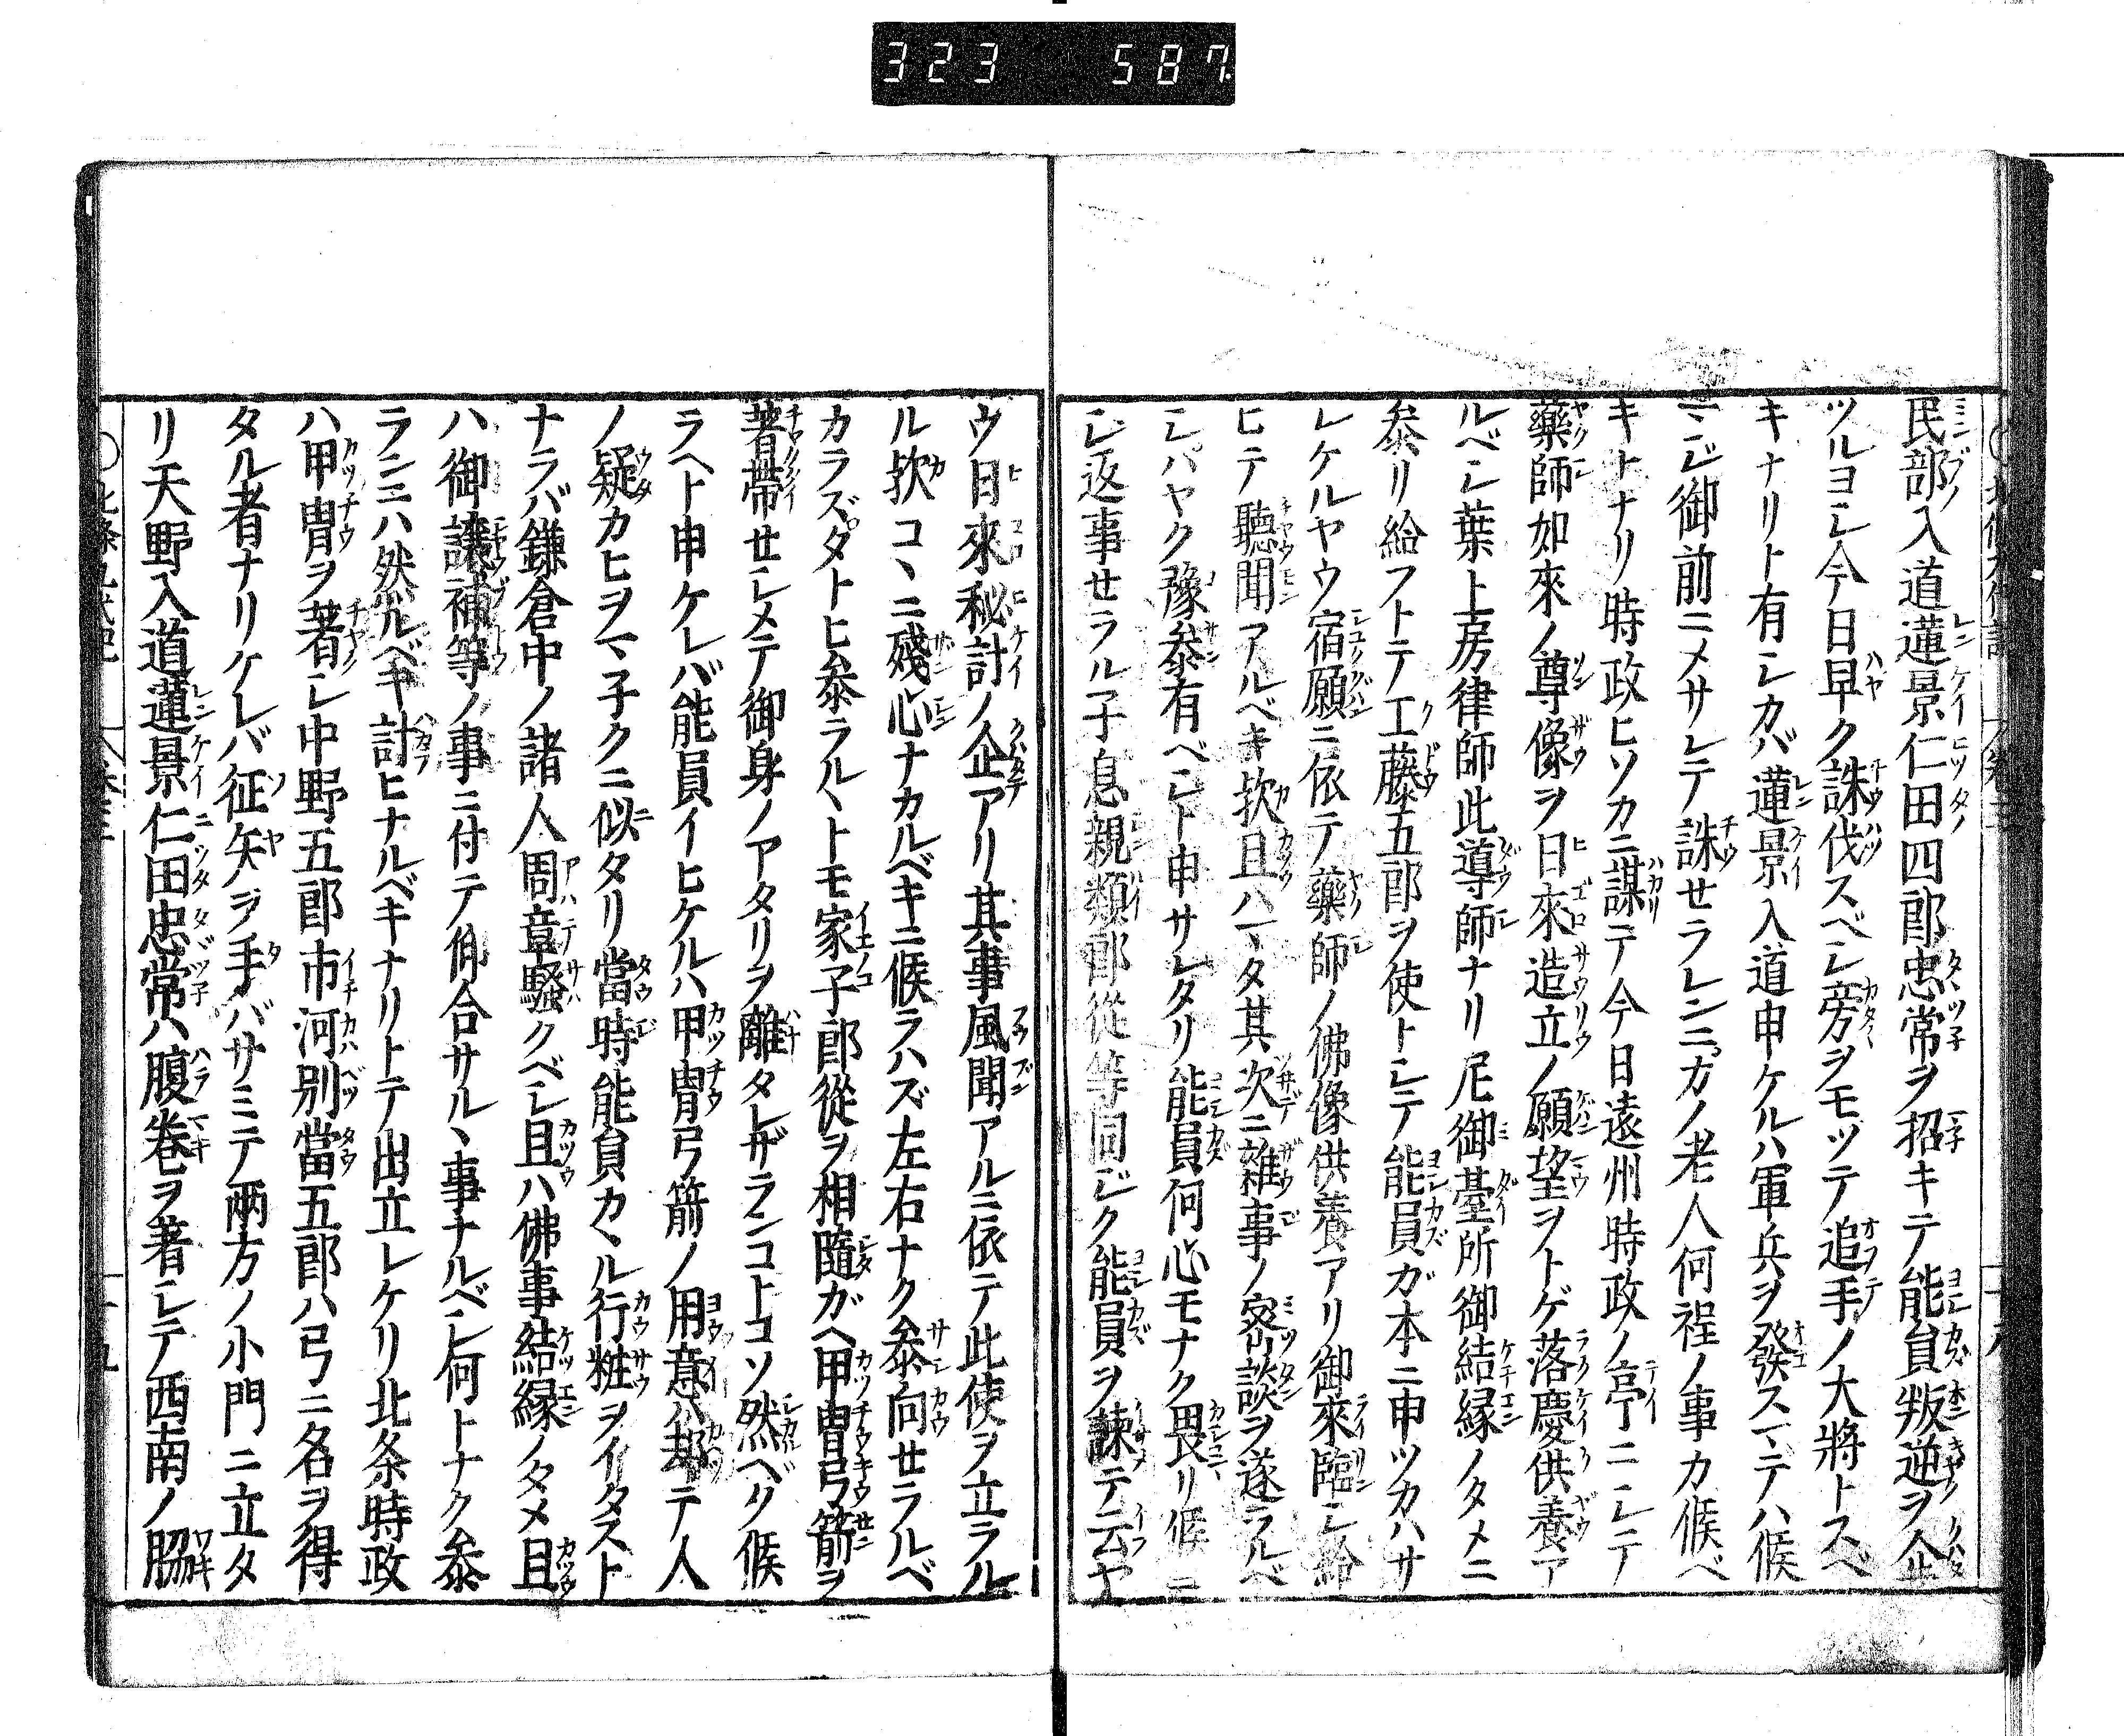 323 587
民部入道蓮景仁田四郎忠常ヲ招キテ能員叛逆ヲ企
ツルヨシ今日早ク誅伐スベシ旁ヲモツテ追手ノ大將トスベ
キナリト有シカバ蓮景入道申ケルハ軍兵ヲ發スマテハ候
マジ御前ニメサレテ誅セラレンニカノ老人何程ノ事カ候ベ
キトナリ時政ヒソカニ謀テ今日遠州時政ノ亭ニシテ
藥師如來ノ尊像ヲ日來造立ノ願望ヲトゲ落慶供養ア
ルベシ葉上房律師此導師ナリ尼御臺所御結縁ノタメニ
參リ給フトテ工藤五郎ヲ使トシテ能員ガ本ニ申ツカハサ
レケルヤウ宿願ニ依テ藥師ノ佛像供養アリ御來臨シ給
ヒテ聽聞アルベキ歟且ハマタ其次ニ雜事ノ密談ヲ遂ラルベ
シハヤク豫參有ベシト申サレタリ能員何心モナク畏リ候ニ
シ返事セラル子息親類郎從等同ジク能員ヲ諫テ云ヤ
ウ日來秘計ノ企アリ其事風聞アルニ依テ此使ヲ立ラル
ル歟コヽニ殘心ナカルベキニ候ラハズ左右ナク參向セラルベ
カラズタトヒ參ラルヽトモ家子郎從ヲ相隨ガヘ甲冑弓箭ヲ
著帶セシメテ御身ノアタリヲ離タレザランコトコソ然ベク候
ラヘト申ケレバ能員イヒケルハ甲冑弓箭ノ用意ハ却テ人
ノ疑カヒヲマ子クニ似タリ當時能員カヽル行粧ヲイタスト
ナラバ鎌倉中ノ諸人周章騷クベシ且ハ佛事結縁ノタメ且
ハ御讓補等ノ事ニ付テ仰合サルヽ事ナルベシ何トナク參
ランニハ然ルベキ計ヒナルベキナリトテ出立レケリ北条時政
ハ甲冑ヲ著シ中野五郎市河別當五郎ハ弓ニ名ヲ得
タル者ナリケレバ征矢ヲ手バサミテ兩方ノ小門ニ立タ
リ天野入道蓮景仁田忠常ハ腹巻ヲ著シテ西南ノ脇